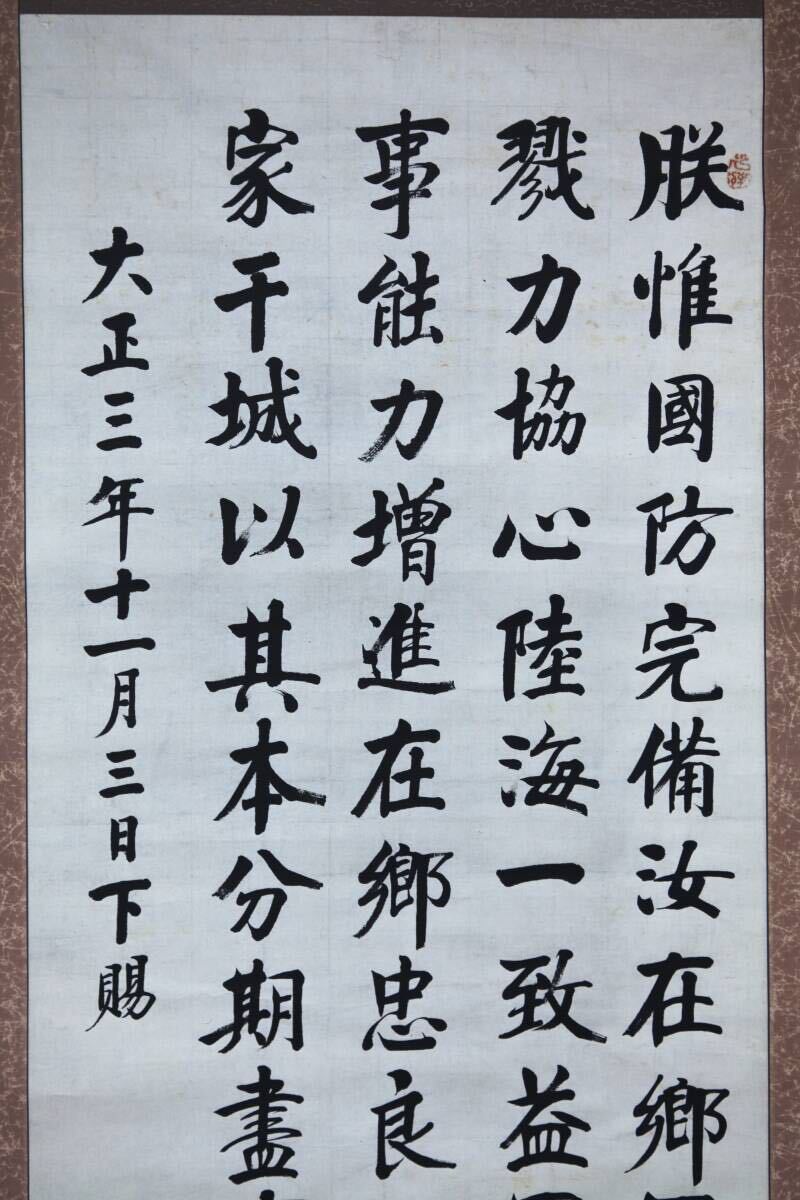 朕惟國防完備汝在郷
戮力協心陸海一致益
事能力増進在郷忠良
家干城以其本分期盡
大正三年十一月三日下賜